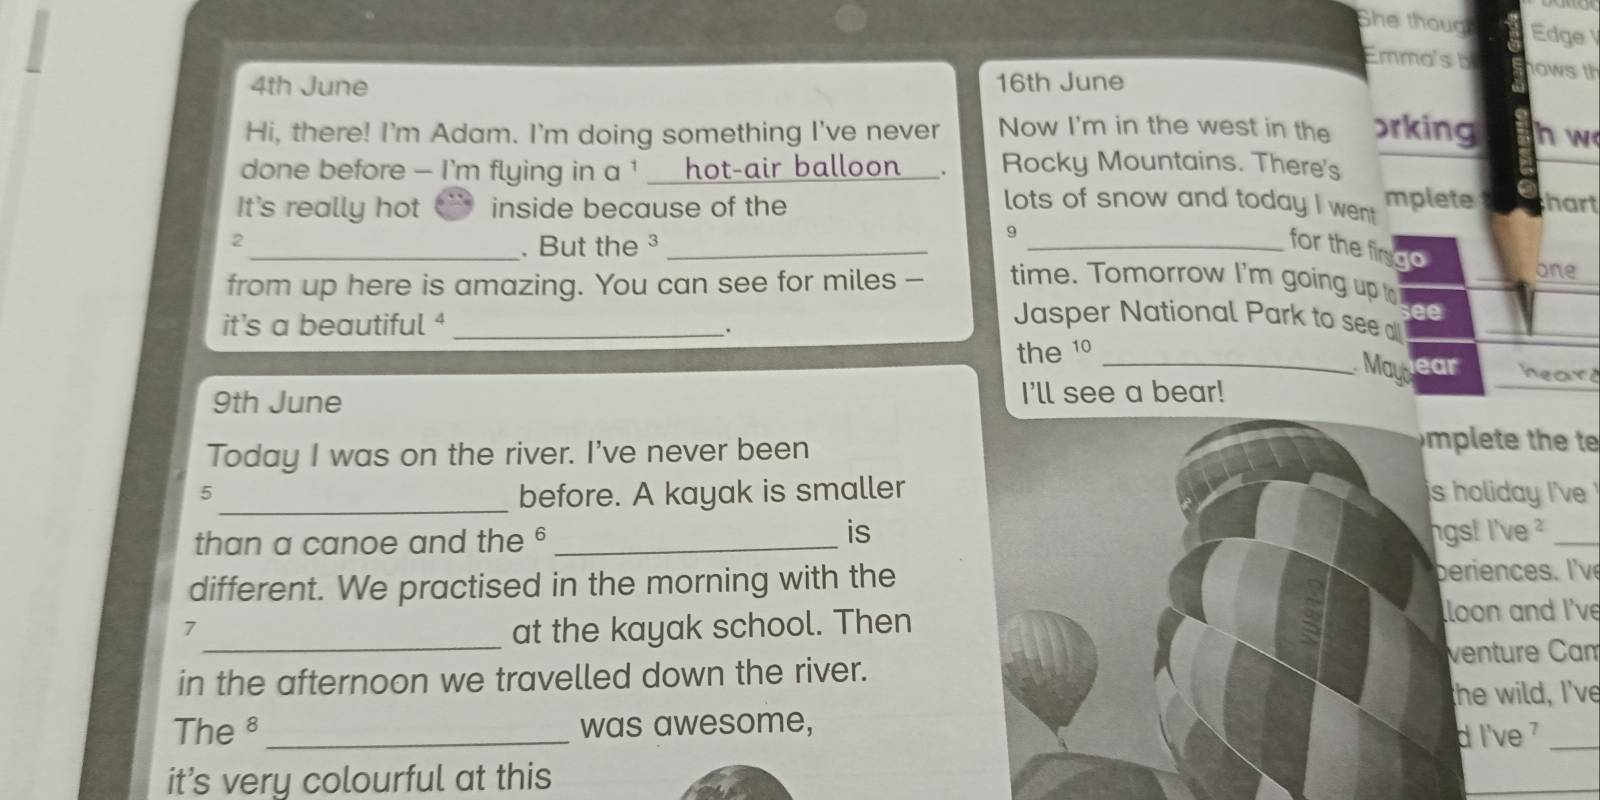 4th June
Hi, there! I'm Adam. I'm doing something I've never
done before – I'm flying in a ¹ hot-air balloon.
It's really hot inside because of the
² ____________. But the ³ ____________
from up here is amazing. You can see for miles –
it's a beautiful ⁴ ____________.
9th June
Today I was on the river. I've never been
⁵ ____________ before. A kayak is smaller
than a canoe and the ⁶ ____________ is
different. We practised in the morning with the
⁷ ____________ at the kayak school. Then
in the afternoon we travelled down the river.
The ⁸ ____________ was awesome,
it's very colourful at this
16th June
Now I'm in the west in the
Rocky Mountains. There's
lots of snow and today I went
⁹ ____________ for the first
time. Tomorrow I'm going up to
Jasper National Park to see all
the ¹⁰ ____________. Maybe
I'll see a bear!
She thoug
Edge
Emma's b
ows th
orking
h wo
mplete
chart
go
one
see
ear
heard
omplete the te
is holiday I've ¹
ngs! I've ² ____
periences. I've
lloon and I've
venture Cam
the wild, I've
d I've ⁷ ____
STABILO Exam Grade